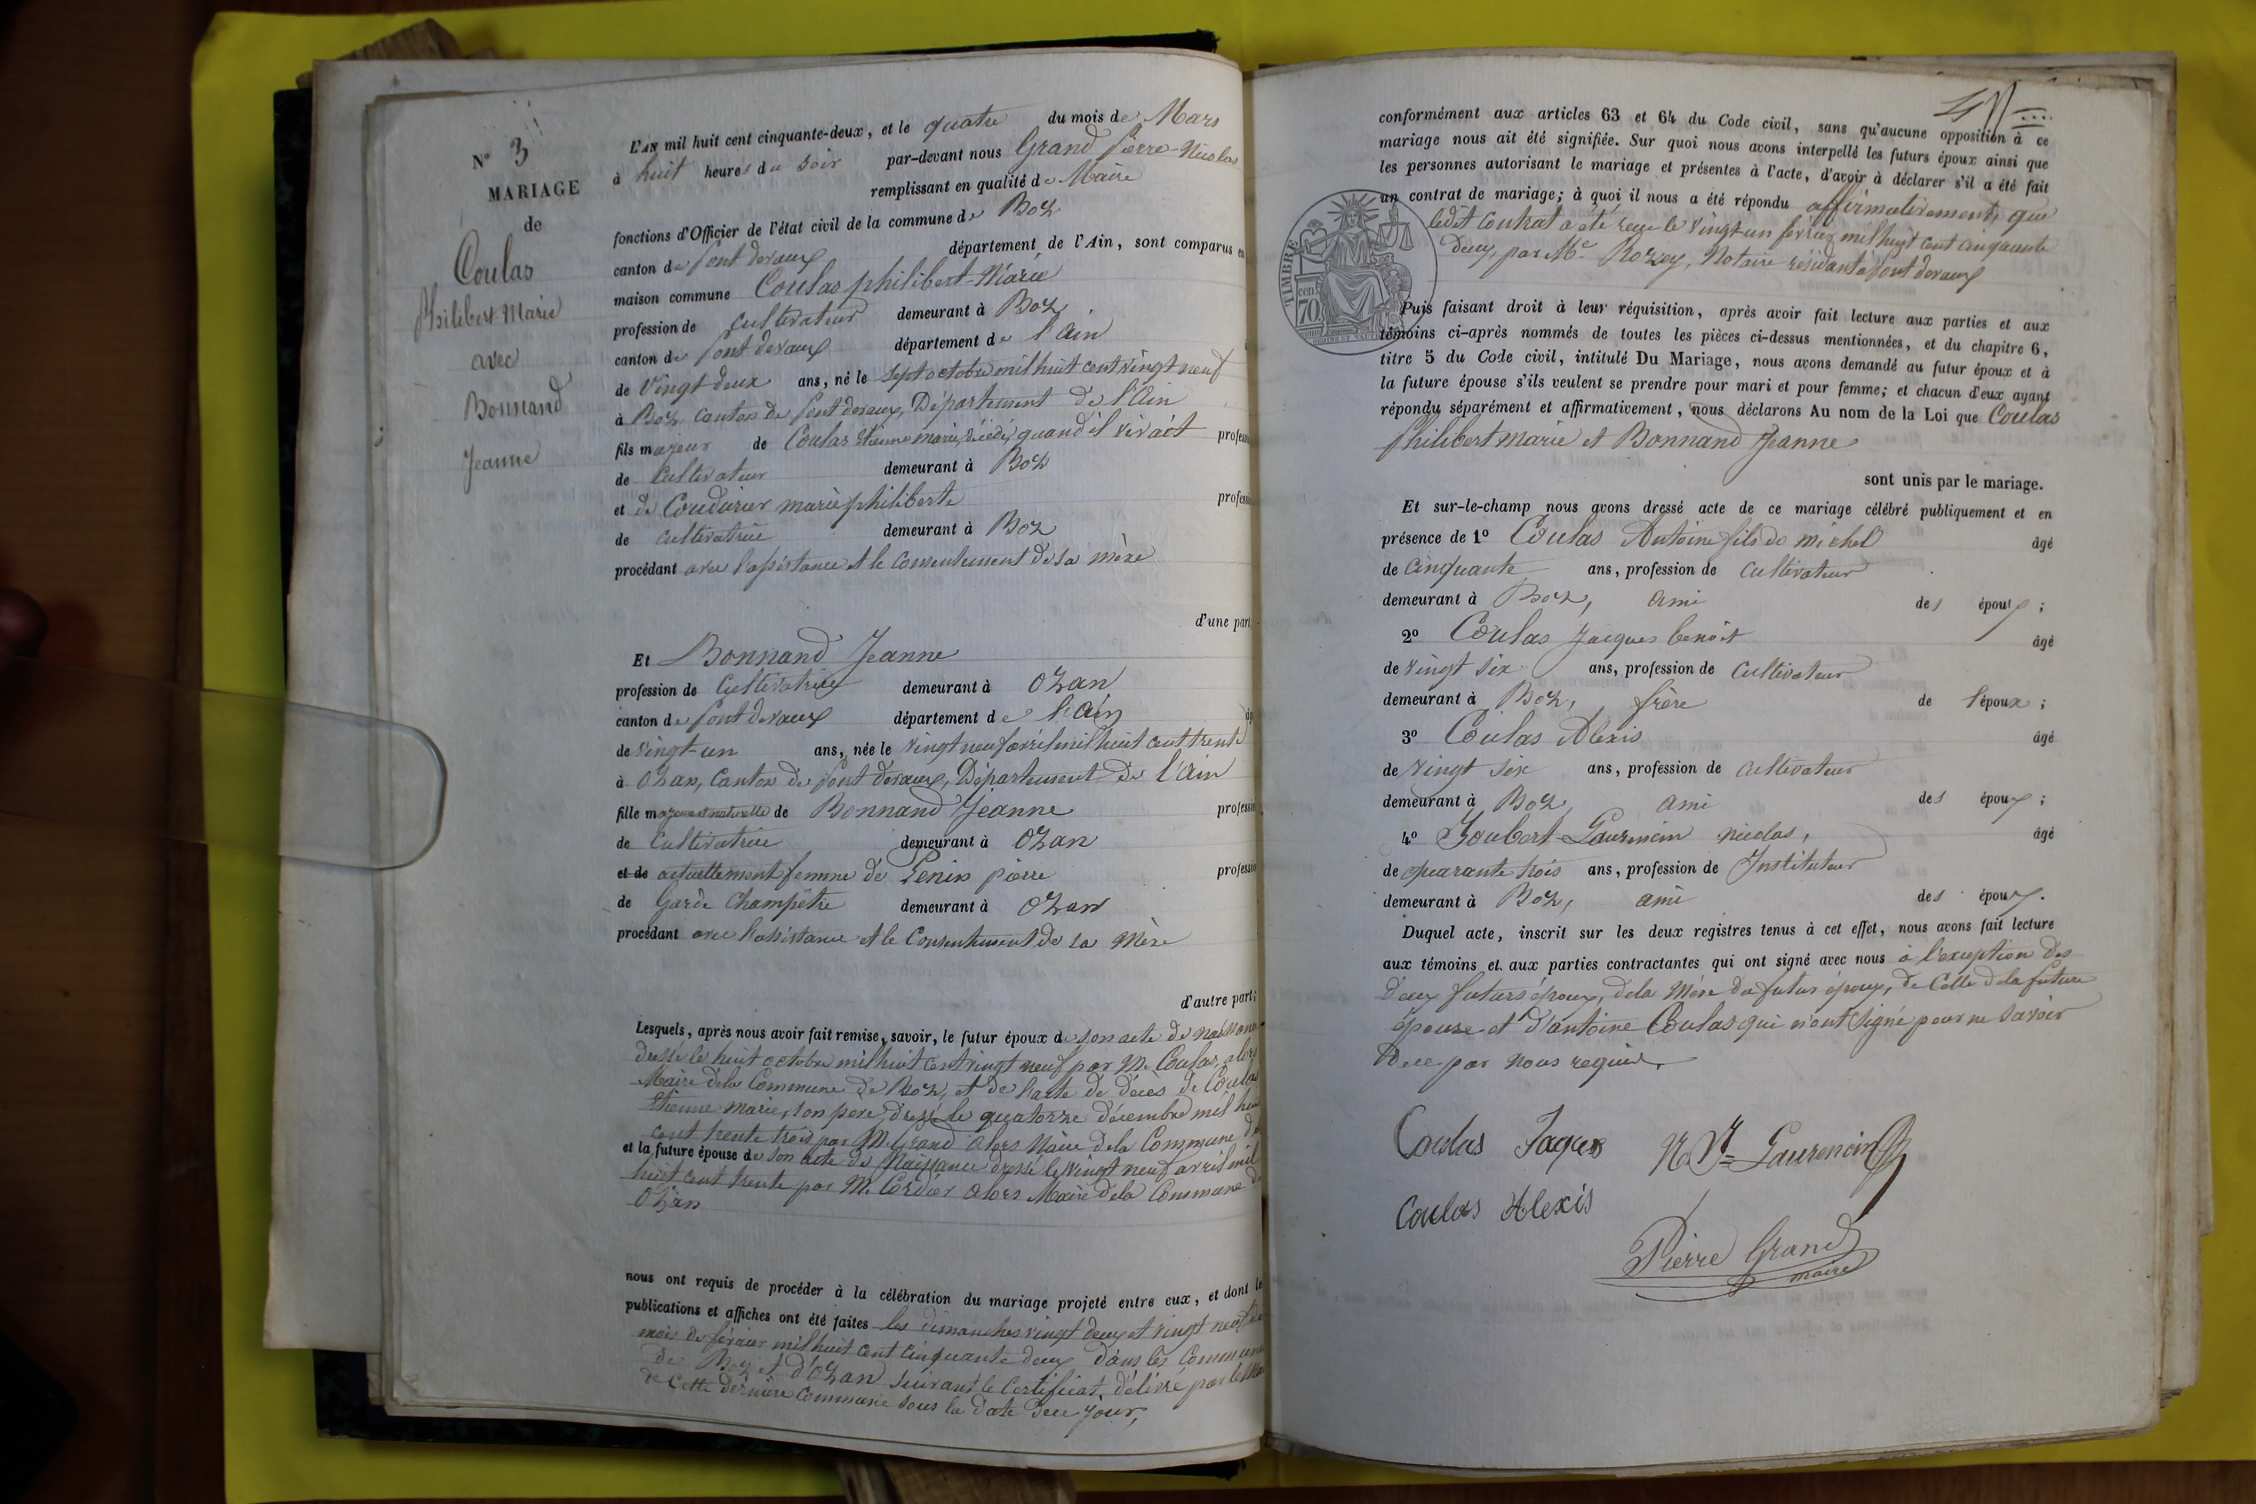 N° 3
MARIAGE
de
Coulas
Philibert Marie
avec
Bonnand
Jeanne
L'AN mil huit cent cinquante-deux, et le quatre du mois de Mars
à huit heures du soir par-devant nous Grand Pierre-Nicolas
remplissant en qualité de Maire
fonctions d'Officier de l'état civil de la commune de Boz
canton de Pont devaux département de l'Ain, sont comparus en
maison commune Coulas philibert-Marie
profession de cultivateur demeurant à Boz
canton de Pont devaux département de l'Ain
de vingt deux ans, né le sept octobre mil huit cent vingt neuf
à Boz canton de Pont devaux, Département de l'Ain
fils majeur de Coulas Etienne marie, quand il vivait profess
de Cultivateur demeurant à Boz
et de Coudurier marie philiberte profess
de cultivatrice demeurant à Boz
procédant avec l'assistance et le consentement de sa mère
d'une part
Et Bonnand Jeanne
profession de Cultivatrice demeurant à Ozan
canton de Pont devaux département de l'Ain
de vingt-un ans, née le vingt neuf avril mil huit cent trente
à Ozan, Canton de Pont devaux, Département de l'Ain
fille majeure et naturelle de Bonnand Jeanne profession
de Cultivatrice demeurant à Ozan
et de actuellement femme de Penin pierre profession
de Garde Champêtre demeurant à Ozan
procédant avec l'assistance et le Consentement de sa Mère
d'autre part;
Lesquels, après nous avoir fait remise, savoir, le futur époux de son acte de naissance
dressé le huit octobre mil huit cent vingt neuf par M. Coulas, alors
Maire de la Commune de Boz, et de l'acte de décès de Coulas
Etienne marie, son père dressé le quatorze décembre mil huit
cent trente trois par M. Grand alors Maire de la Commune de
et la future épouse de son acte de Naissance dressé le vingt neuf avril mil
huit cent trente par M. Cordier alors Maire de la Commune de
Ozan
nous ont requis de procéder à la célébration du mariage projeté entre eux, et dont le
publications et affiches ont été faites les dimanches vingt deux et vingt neuf du
mois de février mil huit cent cinquante deux dans les Commune
de Boz et d'Ozan suivant le Certificat, délivré par le Ma
de Cette dernière Commune sous la date de ce jour,
conformément aux articles 63 et 64 du Code civil, sans qu'aucune opposition à ce
mariage nous ait été signifiée. Sur quoi nous avons interpellé les futurs époux ainsi que
les personnes autorisant le mariage et présentes à l'acte, d'avoir à déclarer s'il a été fait
un contrat de mariage; à quoi il nous a été répondu affirmativement, que
ledit Contrat a été reçu le vingt-un février mil huit cent cinquante
deux, par Me Notaire résidant à Pont devaux
TIMBRE
cen.
70.
Puis faisant droit à leur réquisition, après avoir fait lecture aux parties et aux
témoins ci-après nommés de toutes les pièces ci-dessus mentionnées, et du chapitre 6,
titre 5 du Code civil, intitulé Du Mariage, nous avons demandé au futur époux et à
la future épouse s'ils veulent se prendre pour mari et pour femme; et chacun d'eux ayant
répondu séparément et affirmativement, nous déclarons Au nom de la Loi que Coulas
philibert marie et Bonnand Jeanne
sont unis par le mariage.
Et sur-le-champ nous avons dressé acte de ce mariage célébré publiquement et en
présence de 1° Coulas Antoine fils de michel âgé
de cinquante ans, profession de cultivateur
demeurant à Boz, ami des époux;
2° Coulas Jacques benoit âgé
de vingt six ans, profession de Cultivateur
demeurant à Boz, frère de l'époux;
3° Coulas Alexis âgé
de vingt six ans, profession de cultivateur
demeurant à Boz, ami des époux;
4° Joubert-Laurencin nicolas, âgé
de quarante trois ans, profession de Instituteur
demeurant à Boz, ami des époux.
Duquel acte, inscrit sur les deux registres tenus à cet effet, nous avons fait lecture
aux témoins et aux parties contractantes qui ont signé avec nous à l'exception des
deux futurs époux, de la Mère du futur époux, de Celle de la future
épouse et d'antoine Coulas qui n'ont signé pour ne savoir
de ce par nous requis.
Coulas Jaques
Laurencin
Coulas Alexis
Pierre Grand
maire